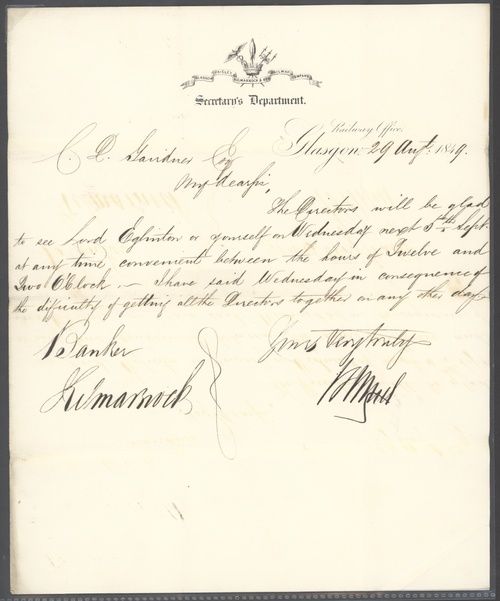 GLASGOW PAISLEY KILMARNOCK & AYR RAILWAY COMPANY
Secretary's Department.
Railway Office,
Glasgow, 29 Augt. 1849.
C. D. Gairdner Esq
My dear Sir,
The Directors will be glad
to see Lord Eglinton or yourself on Wednesday next 5th Sept.
at any time convenient between the hours of Twelve and
Two O'Clock. — I have said Wednesday in consequence of
the difficulty of getting all the Directors together on any other day
Yours Very truly
Banker
Kilmarnock